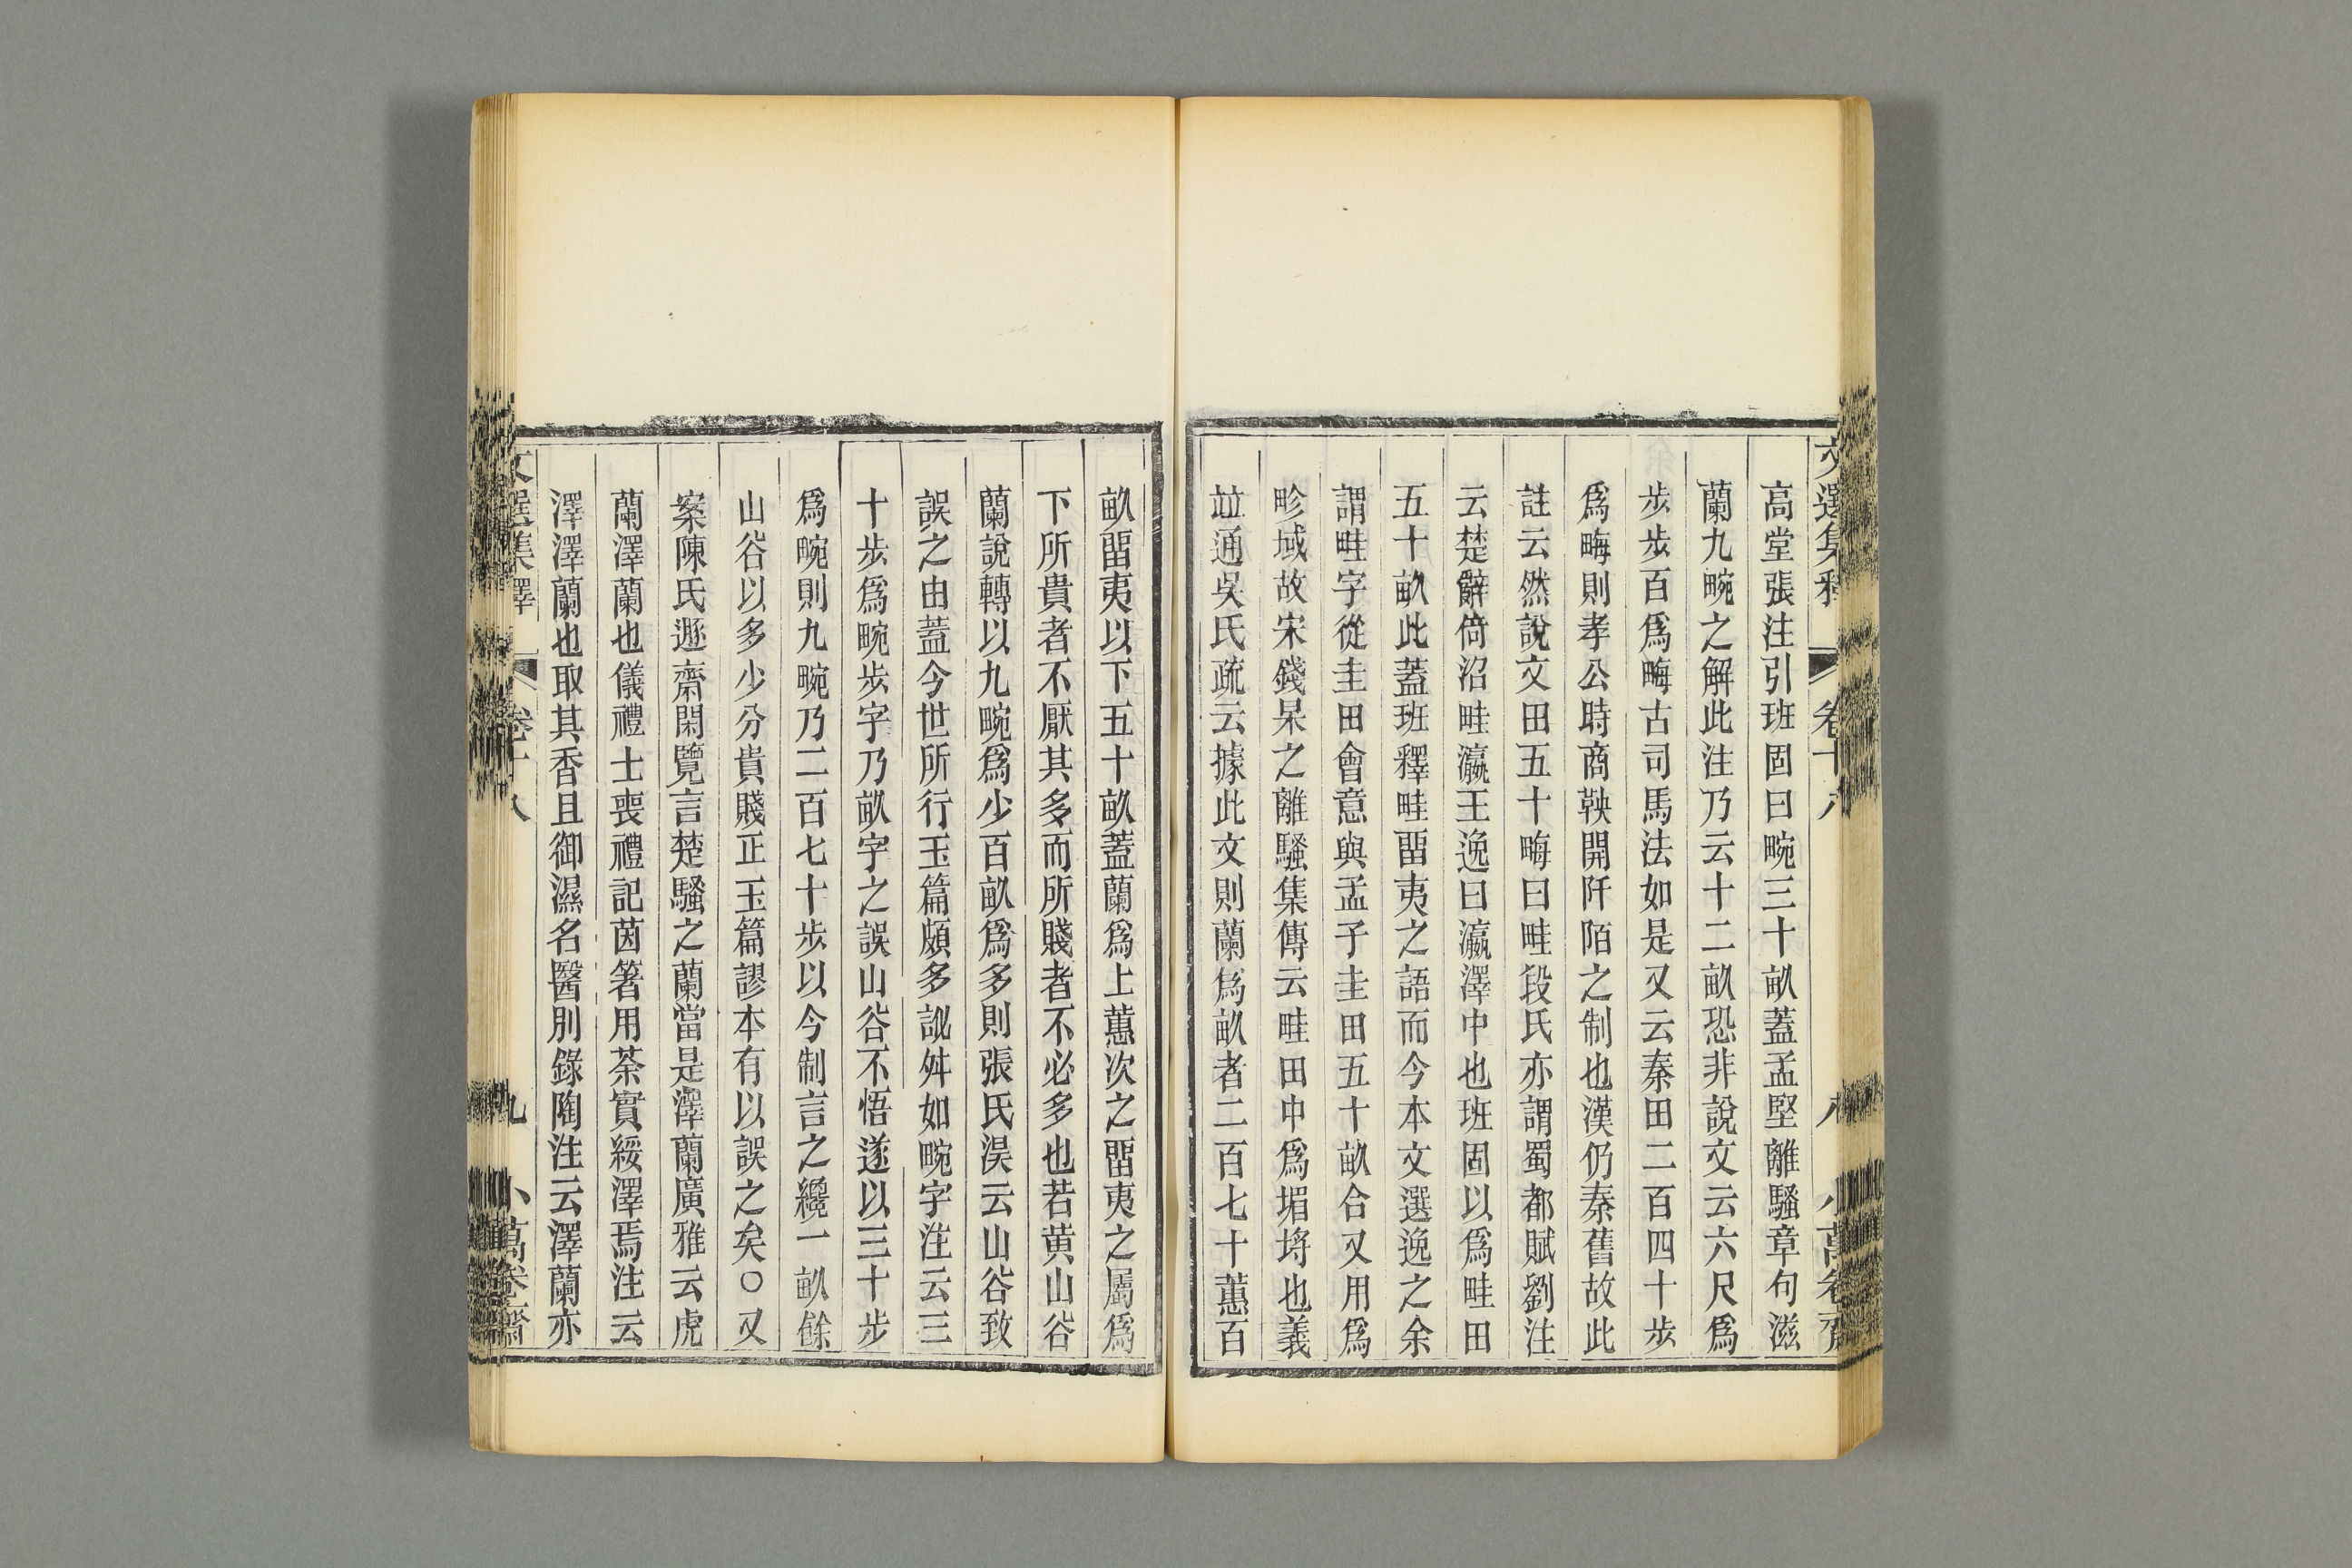 文選集釋 卷十八 八 小萬卷齋
高堂張注引班固曰畹三十畝蓋孟堅離騷章句滋
蘭九畹之解此注乃云十二畝恐非說文云六尺爲
步步百爲畮古司馬法如是又云秦田二百四十步
爲畮則孝公時商鞅開阡陌之制也漢仍秦舊故此
註云然說文田五十畮曰畦段氏亦謂蜀都賦劉注
云楚辭倚沼畦瀛王逸曰瀛澤中也班固以爲畦田
五十畝此蓋班釋畦畱夷之語而今本文選逸之余
謂畦字從圭田會意與孟子圭田五十畝合又用爲
畛域故宋錢杲之離騷集傳云畦田中爲堳埒也義
竝通吳氏疏云據此文則蘭爲畝者二百七十蕙百
畝畱夷以下五十畝蓋蘭爲上蕙次之畱夷之屬爲
下所貴者不厭其多而所賤者不必多也若黄山谷
蘭說轉以九畹爲少百畝爲多則張氏淏云山谷致
誤之由蓋今世所行玉篇頗多訛舛如畹字注云三
十步爲畹步字乃畝字之誤山谷不悟遂以三十步
爲畹則九畹乃二百七十步以今制言之纔一畝餘
山谷以多少分貴賤正玉篇謬本有以誤之矣○又
案陳氏遯齋閑覽言楚騷之蘭當是澤蘭廣雅云虎
蘭澤蘭也儀禮士喪禮記茵箸用荼實綏澤焉注云
澤澤蘭也取其香且御濕名醫別錄陶注云澤蘭亦
文選集釋 卷十八 九 小萬卷齋